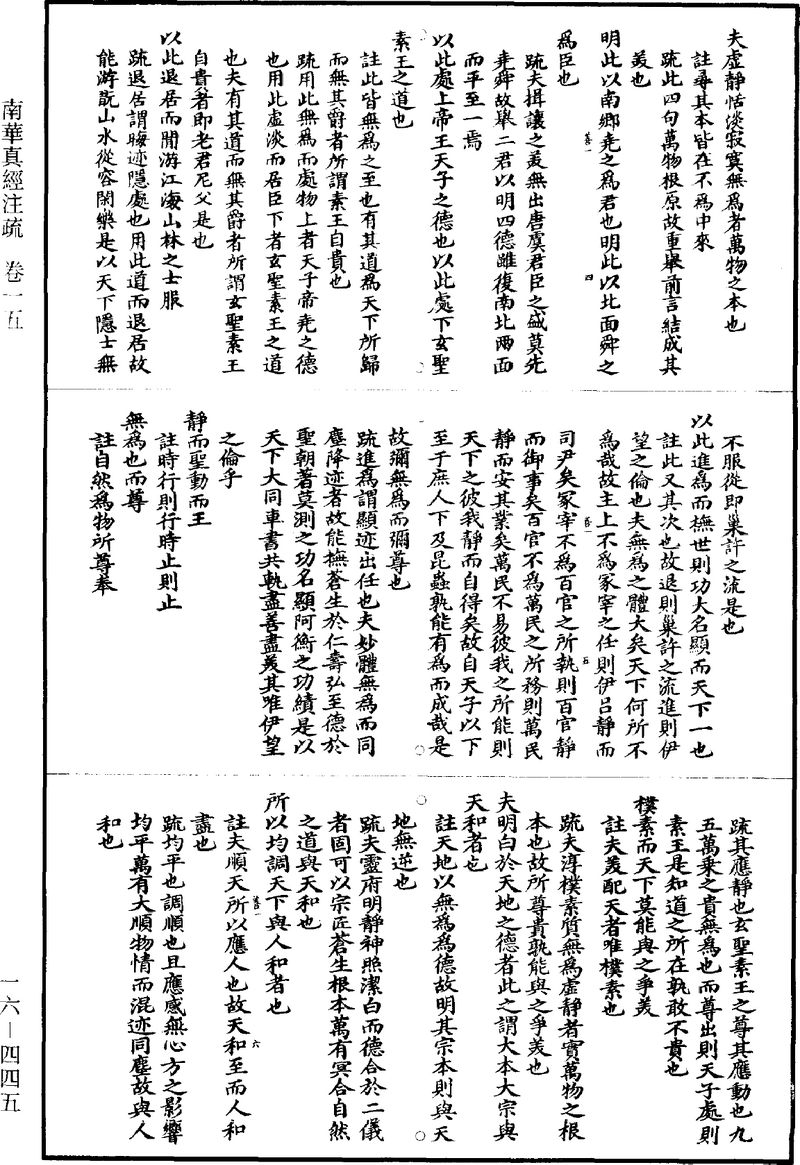 南華真經注疏　卷一五
夫虛靜恬淡寂寞無爲者萬物之本也
註尋其本皆在不爲中來
疏此四句萬物根原故重舉前言結成其
義也
明此以南鄉堯之爲君也明此以北面舜之
爲臣也
疏夫揖讓之美無出唐虞君臣之盛莫先
堯舜故舉二君以明四德雖復南北兩面
而平至一焉
以此處上帝王天子之德也以此處下玄聖
素王之道也
註此皆無爲之至也有其道爲天下所歸
而無其爵者所謂素王自貴也
疏用此無爲而處物上者天子帝堯之德
也用此虛淡而居臣下者玄聖素王之道
也夫有其道而無其爵者所謂玄聖素王
自貴者即老君尼父是也
以此退居而閒游江海山林之士服
疏退居謂晦迹隱處也用此道而退居故
能游翫山水從容閑樂是以天下隱士無
不服從即巢許之流是也
以此進爲而撫世則功大名顯而天下一也
註此又其次也故退則巢許之流進則伊
望之倫也夫無爲之體大矣天下何所不
爲哉故主上不爲冢宰之任則伊呂靜而
司尹矣冢宰不爲百官之所執則百官靜
而御事矣百官不爲萬民之所務則萬民
靜而安其業矣萬民不易彼我之所能則
天下之彼我靜而自得矣故自天子以下
至于庶人下及昆蟲孰能有爲而成哉是
故彌無爲而彌尊也
疏進爲謂顯迹出仕也夫妙體無爲而同
塵降迹者故能撫蒼生於仁壽弘至德於
聖朝著莫測之功名顯阿衡之功績是以
天下大同車書共軌盡善盡美其唯伊望
之倫乎
靜而聖動而王
註時行則行時止則止
無爲也而尊
註自然爲物所尊奉
疏其應靜也玄聖素王之尊其應動也九
五萬乘之貴無爲也而尊出則天子處則
素王是知道之所在孰敢不貴也
樸素而天下莫能與之爭美
註夫美配天者唯樸素也
疏夫淳樸素質無爲虛靜者實萬物之根
本也故所尊貴孰能與之爭美也
夫明白於天地之德者此之謂大本大宗與
天和者也
註天地以無爲爲德故明其宗本則與天
地無逆也
疏夫靈府明靜神照潔白而德合於二儀
者固可以宗匠蒼生根本萬有冥合自然
之道與天和也
所以均調天下與人和者也
註夫順天所以應人也故天和至而人和
盡也
疏均平也調順也且應感無心方之影響
均平萬有大順物情而混迹同塵故與人
和也
一六－四四五